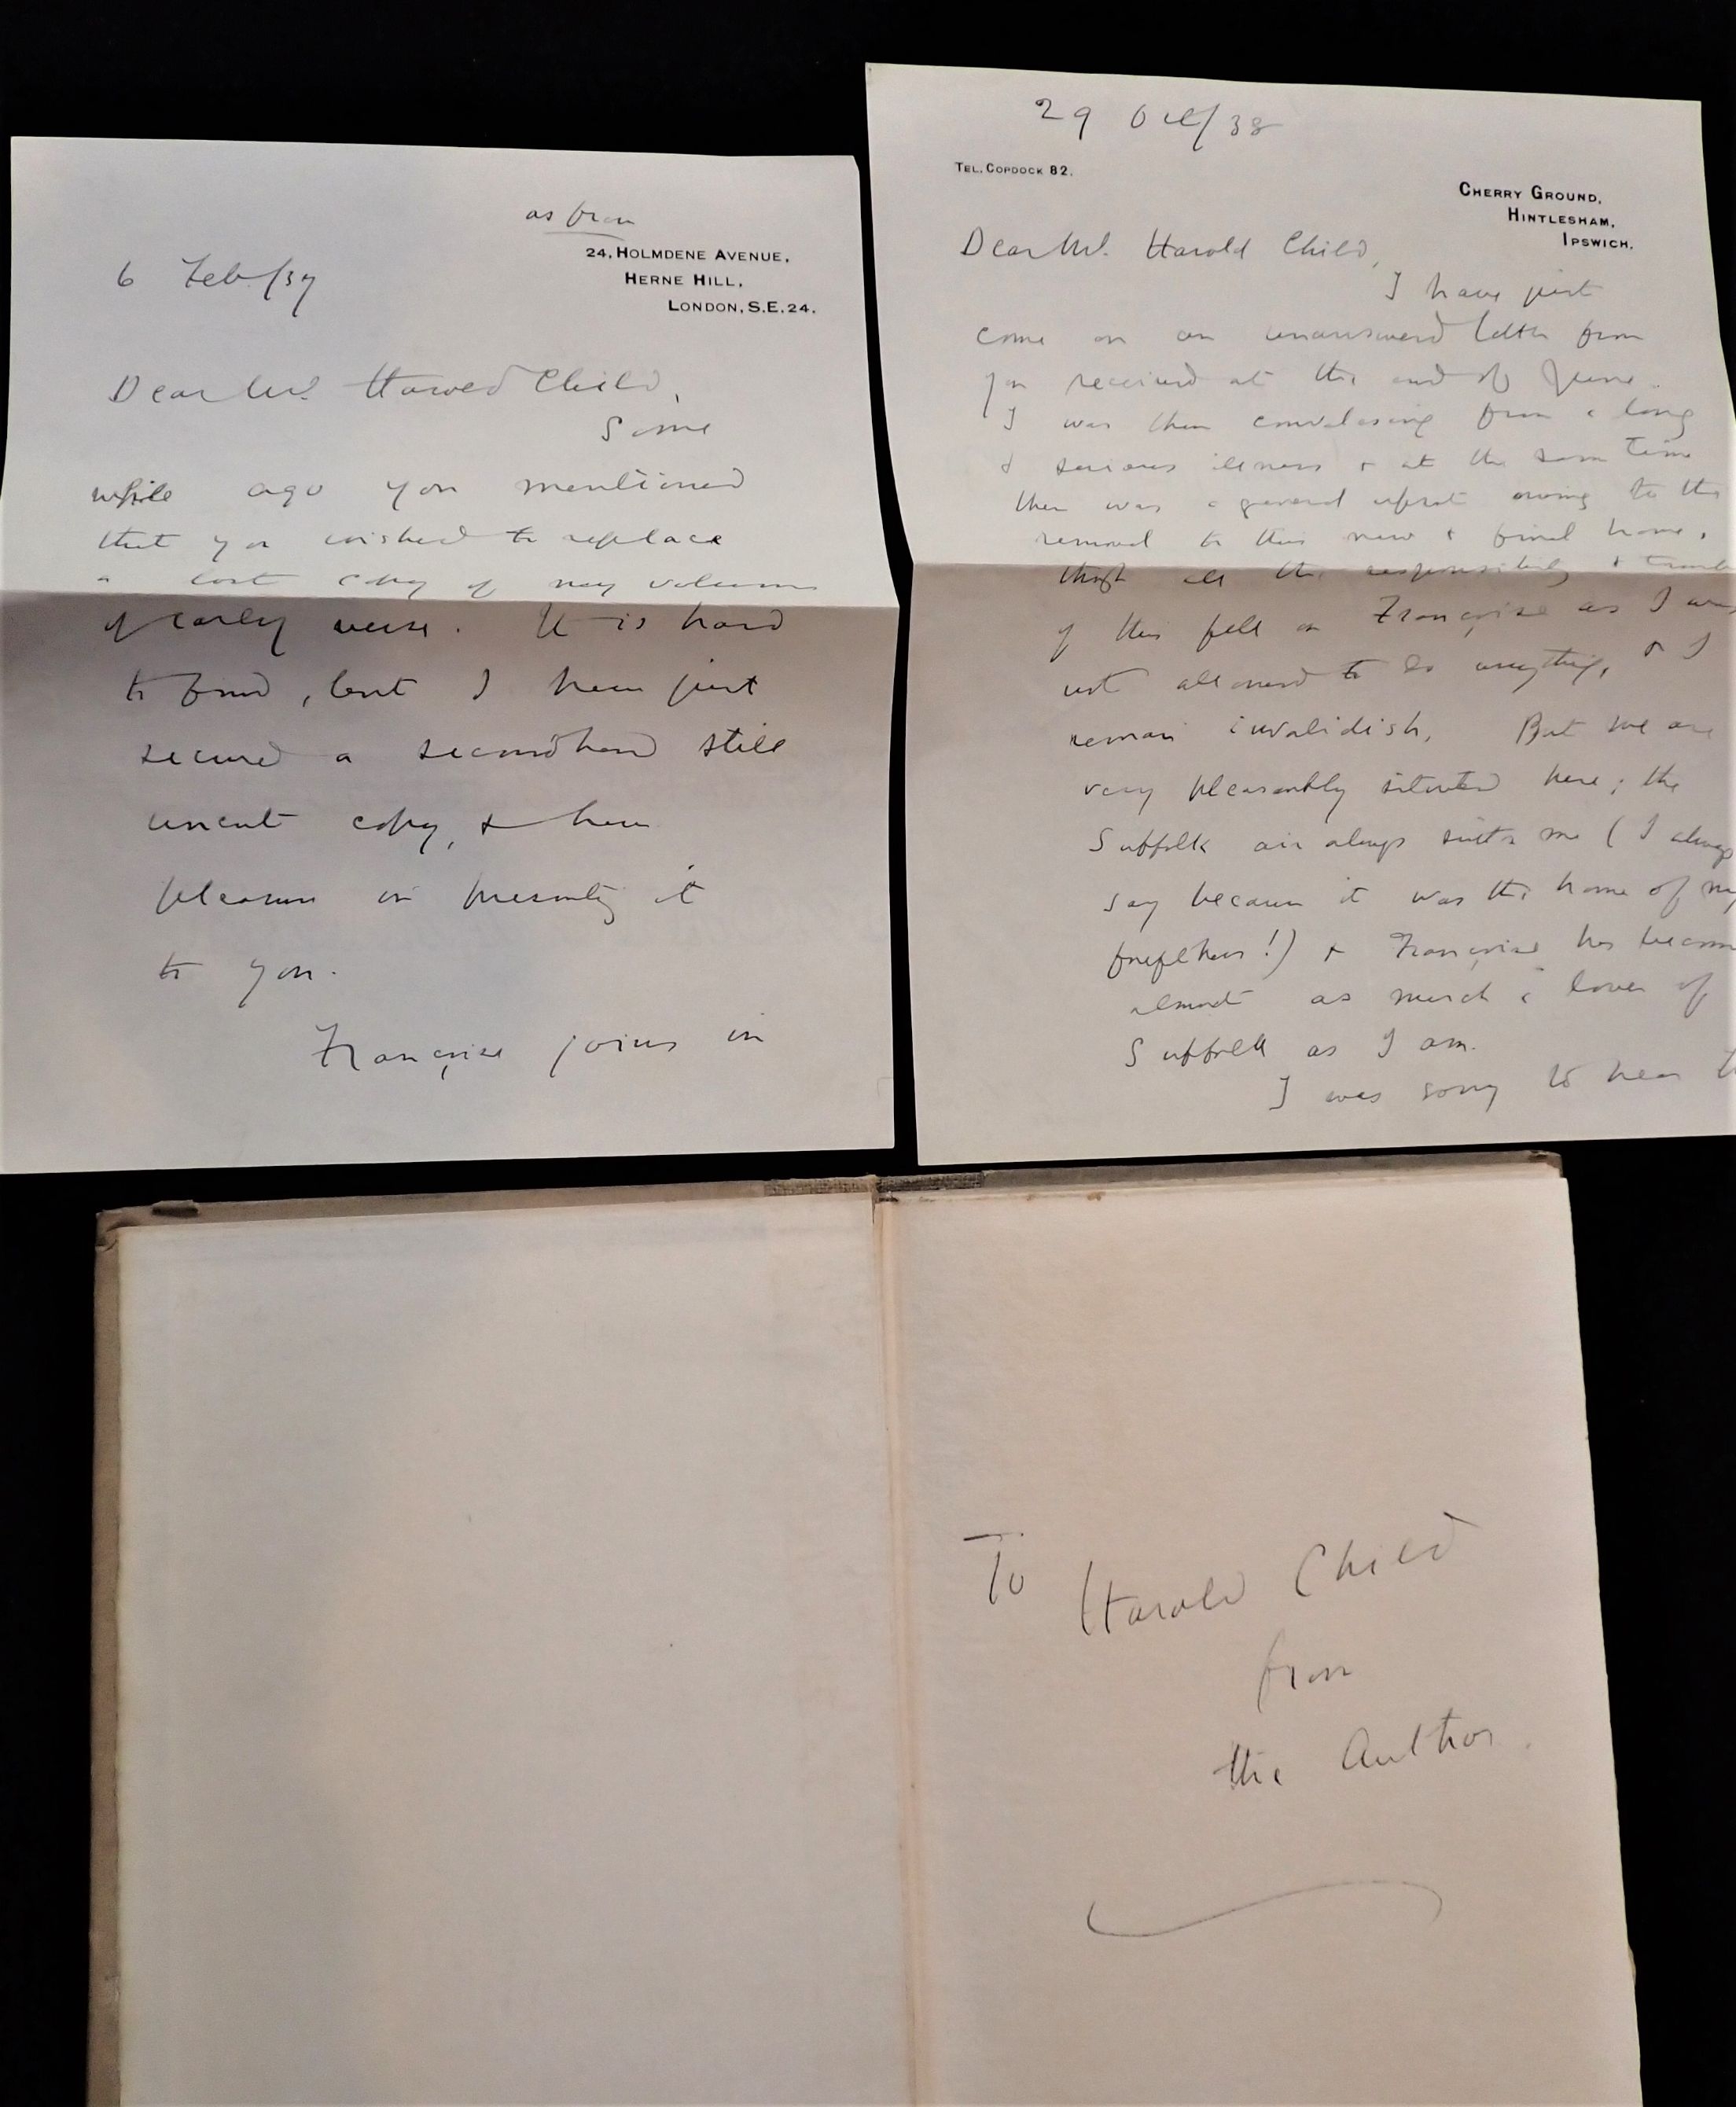 as from
24, HOLMDENE AVENUE,
HERNE HILL,
LONDON, S.E. 24.
6 Feb/37
Dear Mr. Harold Child,
Some
while ago you mentioned
that you wished to replace
a lost copy of my volume
of early verse. It is hard
to find, but I have just
secured a secondhand still
uncut copy, & have
pleasure in presenting it
to you.
Françoise joins in
29 Oct/38
TEL. COPDOCK 82.
CHERRY GROUND,
HINTLESHAM,
IPSWICH.
Dear Mr. Harold Child,
I have just
come on an unanswered letter from
you received at the end of June.
I was then convalescing from a long
& serious illness & at the same time
there was a general upset owing to the
removal to this new & final home,
though all the responsibility & trouble
of this fell on Françoise as I was
not allowed to do anything, & I
remain invalidish. But we are
very pleasantly situated here; the
Suffolk air always suits me (I always
say because it was the home of my
forefathers!) & Françoise has become
almost as much a lover of
Suffolk as I am.
I was sorry to hear
To Harold Child
from
the Author